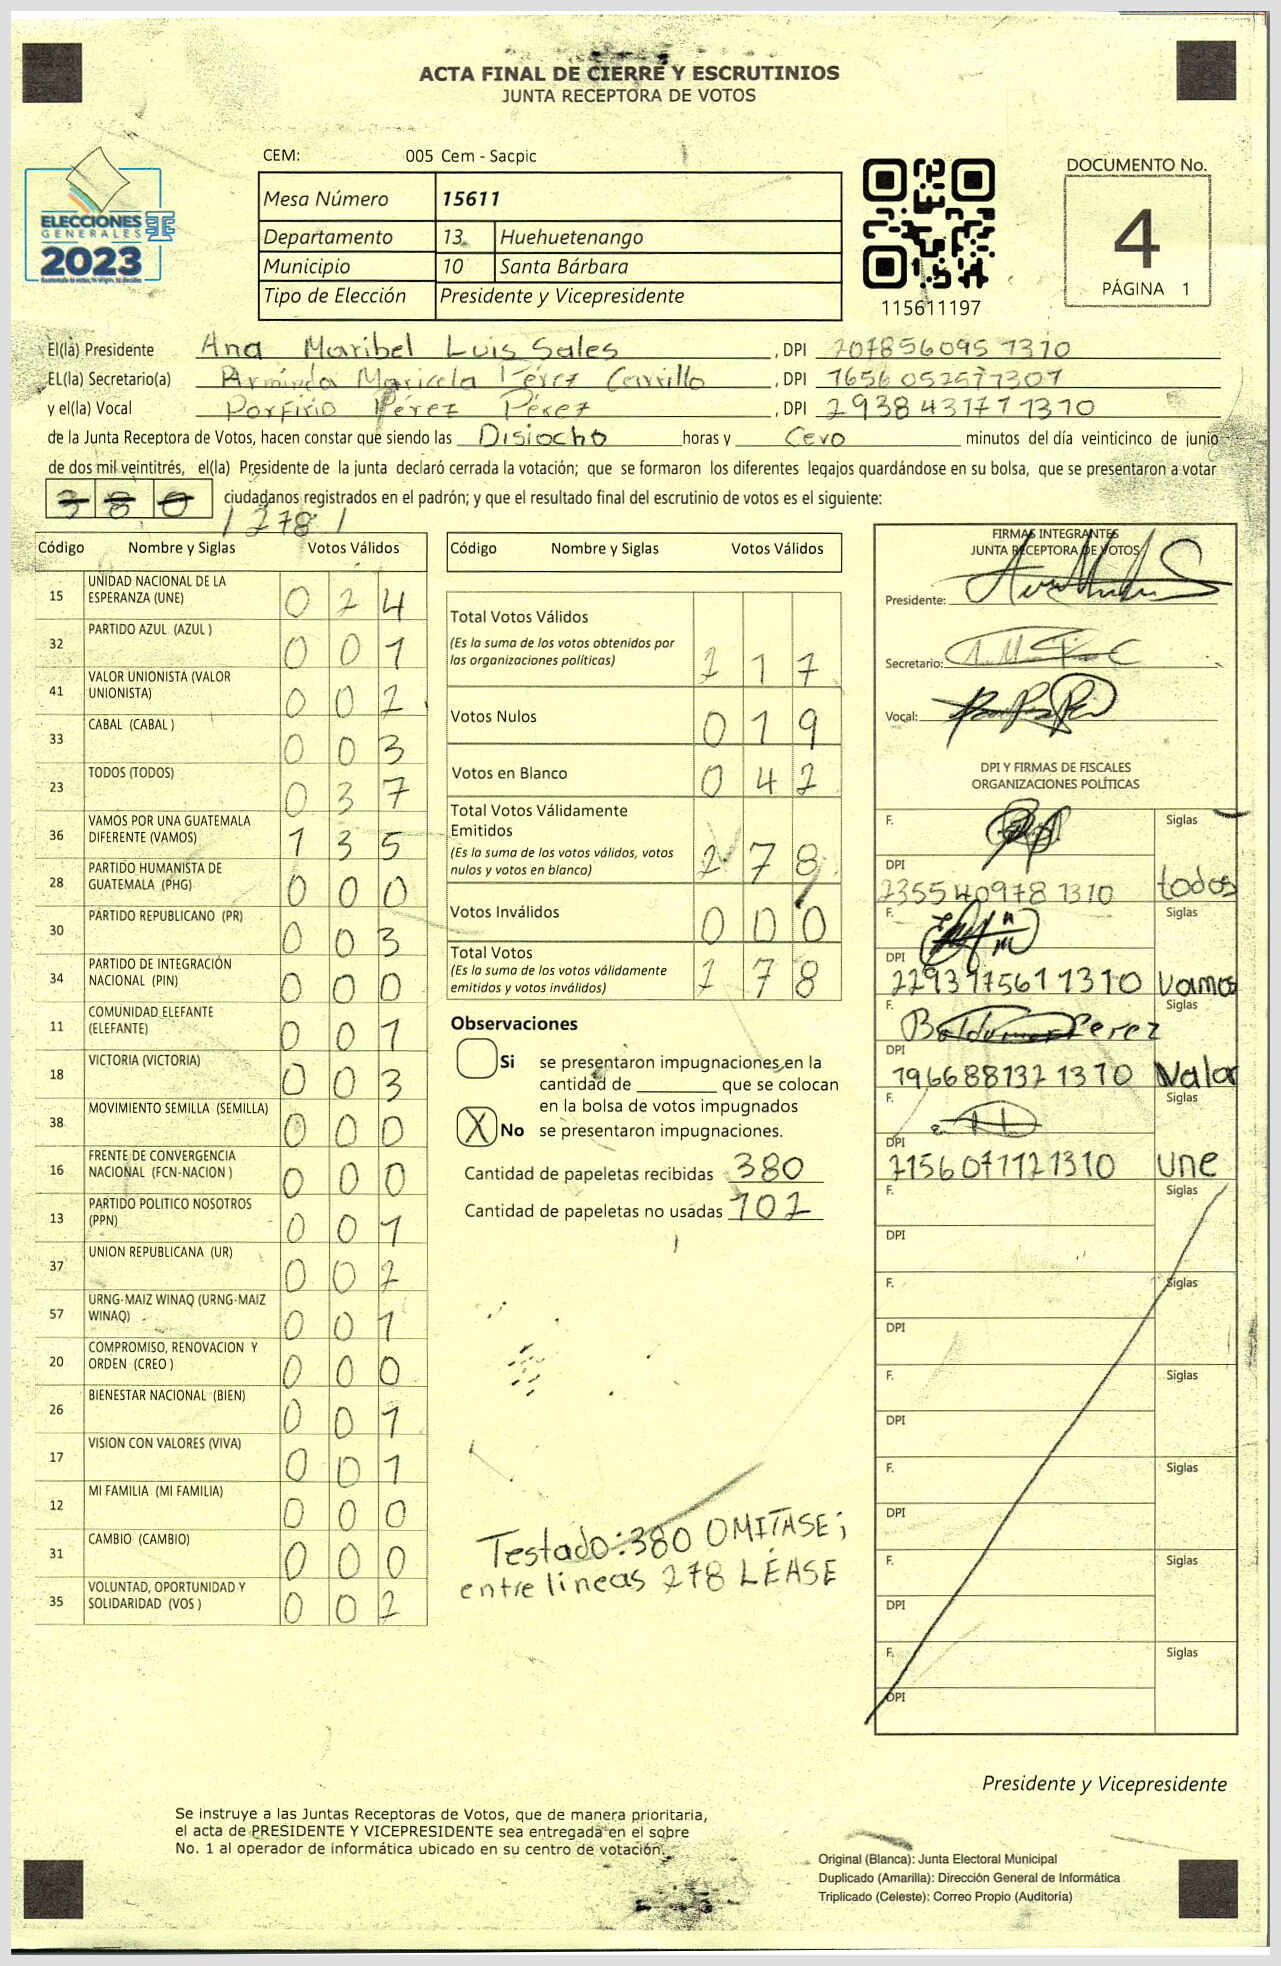 ACTA FINAL DE CIERRE Y ESCRUTINIOS
JUNTA RECEPTORA DE VOTOS
CEM: 005 Cem - Sacpic
DOCUMENTO No.
4
PÁGINA 1
ELECCIONES
GENERALES
2023
Mesa Número 15611
Departamento 13 Huehuetenango
Municipio 10 Santa Bárbara
Tipo de Elección Presidente y Vicepresidente
115611197
El(la) Presidente Ana Maribel Luis Sales, DPI 2078560951310
EL(la) Secretario(a) Arminda Maricela Pérez Carrillo, DPI
y el(la) Vocal Porfirio Pérez Pérez, DPI 2938431771310
de la Junta Receptora de Votos, hacen constar que siendo las Disiocho horas y Cero minutos del día veinticinco de junio
de dos mil veintitrés, el(la) Presidente de la junta declaró cerrada la votación; que se formaron los diferentes legajos guardándose en su bolsa, que se presentaron a votar
380 ciudadanos registrados en el padrón; y que el resultado final del escrutinio de votos es el siguiente:
/278/
Código Nombre y Siglas Votos Válidos
15 UNIDAD NACIONAL DE LA ESPERANZA (UNE) 0 2 4
32 PARTIDO AZUL (AZUL ) 0 0 1
41 VALOR UNIONISTA (VALOR UNIONISTA) 0 0 2
33 CABAL (CABAL ) 0 0 3
23 TODOS (TODOS) 0 3 7
36 VAMOS POR UNA GUATEMALA DIFERENTE (VAMOS) 1 3 5
28 PARTIDO HUMANISTA DE GUATEMALA (PHG) 0 0 0
30 PARTIDO REPUBLICANO (PR) 0 0 3
34 PARTIDO DE INTEGRACIÓN NACIONAL (PIN) 0 0 0
11 COMUNIDAD ELEFANTE (ELEFANTE) 0 0 1
18 VICTORIA (VICTORIA) 0 0 3
38 MOVIMIENTO SEMILLA (SEMILLA) 0 0 0
16 FRENTE DE CONVERGENCIA NACIONAL (FCN-NACION ) 0 0 0
13 PARTIDO POLITICO NOSOTROS (PPN) 0 0 1
37 UNION REPUBLICANA (UR) 0 0 2
57 URNG-MAIZ WINAQ (URNG-MAIZ WINAQ) 0 0 1
20 COMPROMISO, RENOVACION Y ORDEN (CREO ) 0 0 0
26 BIENESTAR NACIONAL (BIEN) 0 0 1
17 VISION CON VALORES (VIVA) 0 0 1
12 MI FAMILIA (MI FAMILIA) 0 0 0
31 CAMBIO (CAMBIO) 0 0 0
35 VOLUNTAD, OPORTUNIDAD Y SOLIDARIDAD (VOS ) 0 0 2
Código Nombre y Siglas Votos Válidos
Total Votos Válidos
(Es la suma de los votos obtenidos por
las organizaciones políticas) 2 1 7
Votos Nulos 0 1 9
Votos en Blanco 0 4 2
Total Votos Válidamente
Emitidos
(Es la suma de los votos válidos, votos
nulos y votos en blanco) 2 7 8
Votos Inválidos 0 0 0
Total Votos
(Es la suma de los votos válidamente
emitidos y votos inválidos) 2 7 8
Observaciones
Si se presentaron impugnaciones en la
cantidad de ________ que se colocan
en la bolsa de votos impugnados
X No se presentaron impugnaciones.
Cantidad de papeletas recibidas 380
Cantidad de papeletas no usadas 102
Testado: 380 OMITASE;
entre lineas 278 LÉASE
FIRMAS INTEGRANTES
JUNTA RECEPTORA DE VOTOS
Presidente:
Secretario:
Vocal:
DPI Y FIRMAS DE FISCALES
ORGANIZACIONES POLÍTICAS
F. Siglas
DPI
2355409781310 todos
F. Siglas
DPI
2293975611310 Vamos
F. Siglas
Perez
DPI
1966881321310 Valor
F. Siglas
DPI
2156071121310 une
F. Siglas
DPI
F. Siglas
DPI
F. Siglas
DPI
F. Siglas
DPI
F. Siglas
DPI
F. Siglas
DPI
Presidente y Vicepresidente
Se instruye a las Juntas Receptoras de Votos, que de manera prioritaria,
el acta de PRESIDENTE Y VICEPRESIDENTE sea entregada en el sobre
No. 1 al operador de informática ubicado en su centro de votación.
Original (Blanca): Junta Electoral Municipal
Duplicado (Amarilla): Dirección General de Informática
Triplicado (Celeste): Correo Propio (Auditoría)